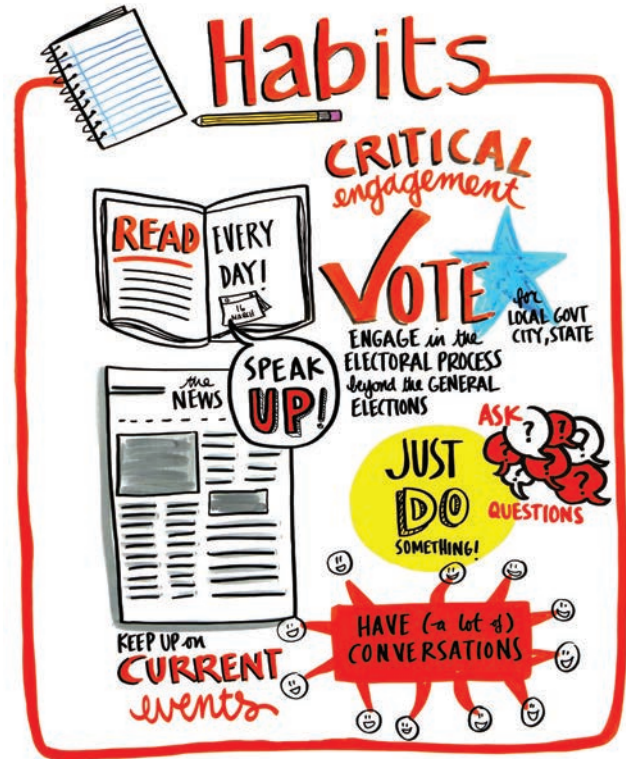 Habits
CRITICAL
engagement
READ EVERY
DAY!
16
MARCH
SPEAK
UP!
VOTE
for
LOCAL GOVT
CITY, STATE
ENGAGE in the
ELECTORAL PROCESS
beyond the GENERAL
ELECTIONS
the
NEWS
ASK
? ? ? ? ? ?
QUESTIONS
JUST
DO
SOMETHING!
KEEP UP on
CURRENT
events
HAVE (a lot of)
CONVERSATIONS